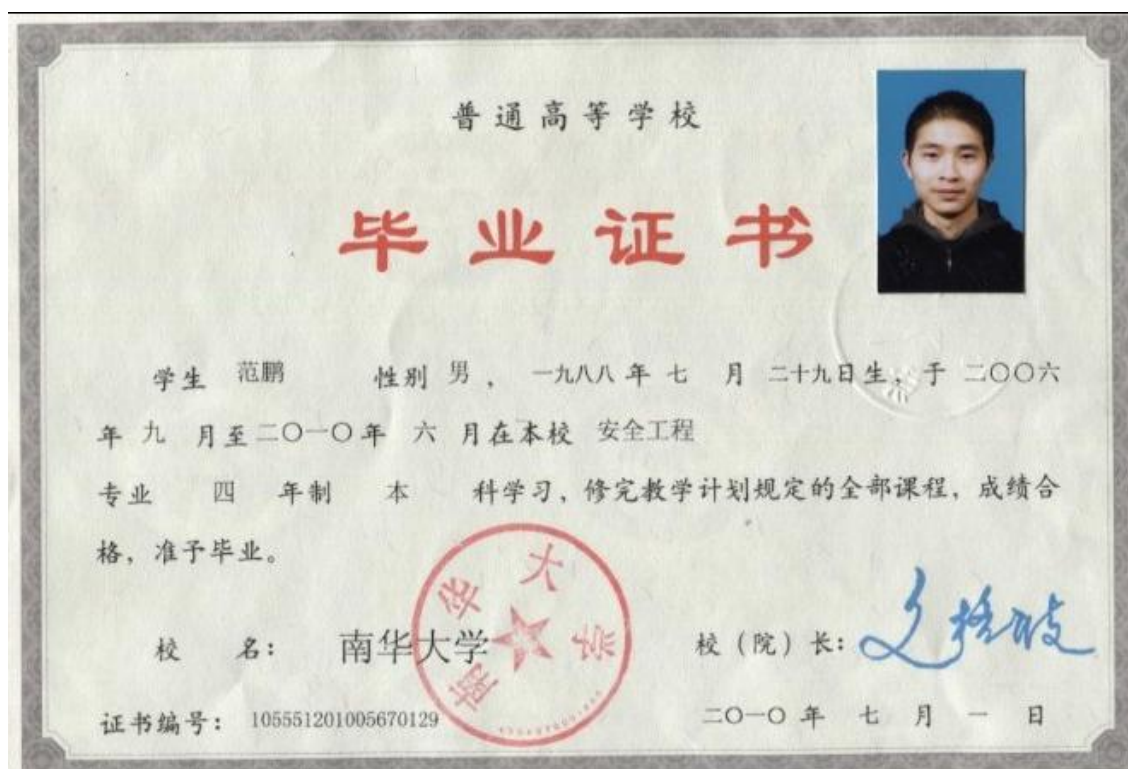 普通高等学校
毕业证书
学生 范鹏 性别 男 ， 一九八八 年 七 月 二十九日生，于 二〇〇六
年 九 月至二〇一〇年 六 月在本校 安全工程
专业 四 年制 本 科学习，修完教学计划规定的全部课程，成绩合
格，准予毕业。
南华大学
校 名： 南华大学 校（院）长：
证书编号： 105551201005670129 二〇一〇 年 七 月 一 日